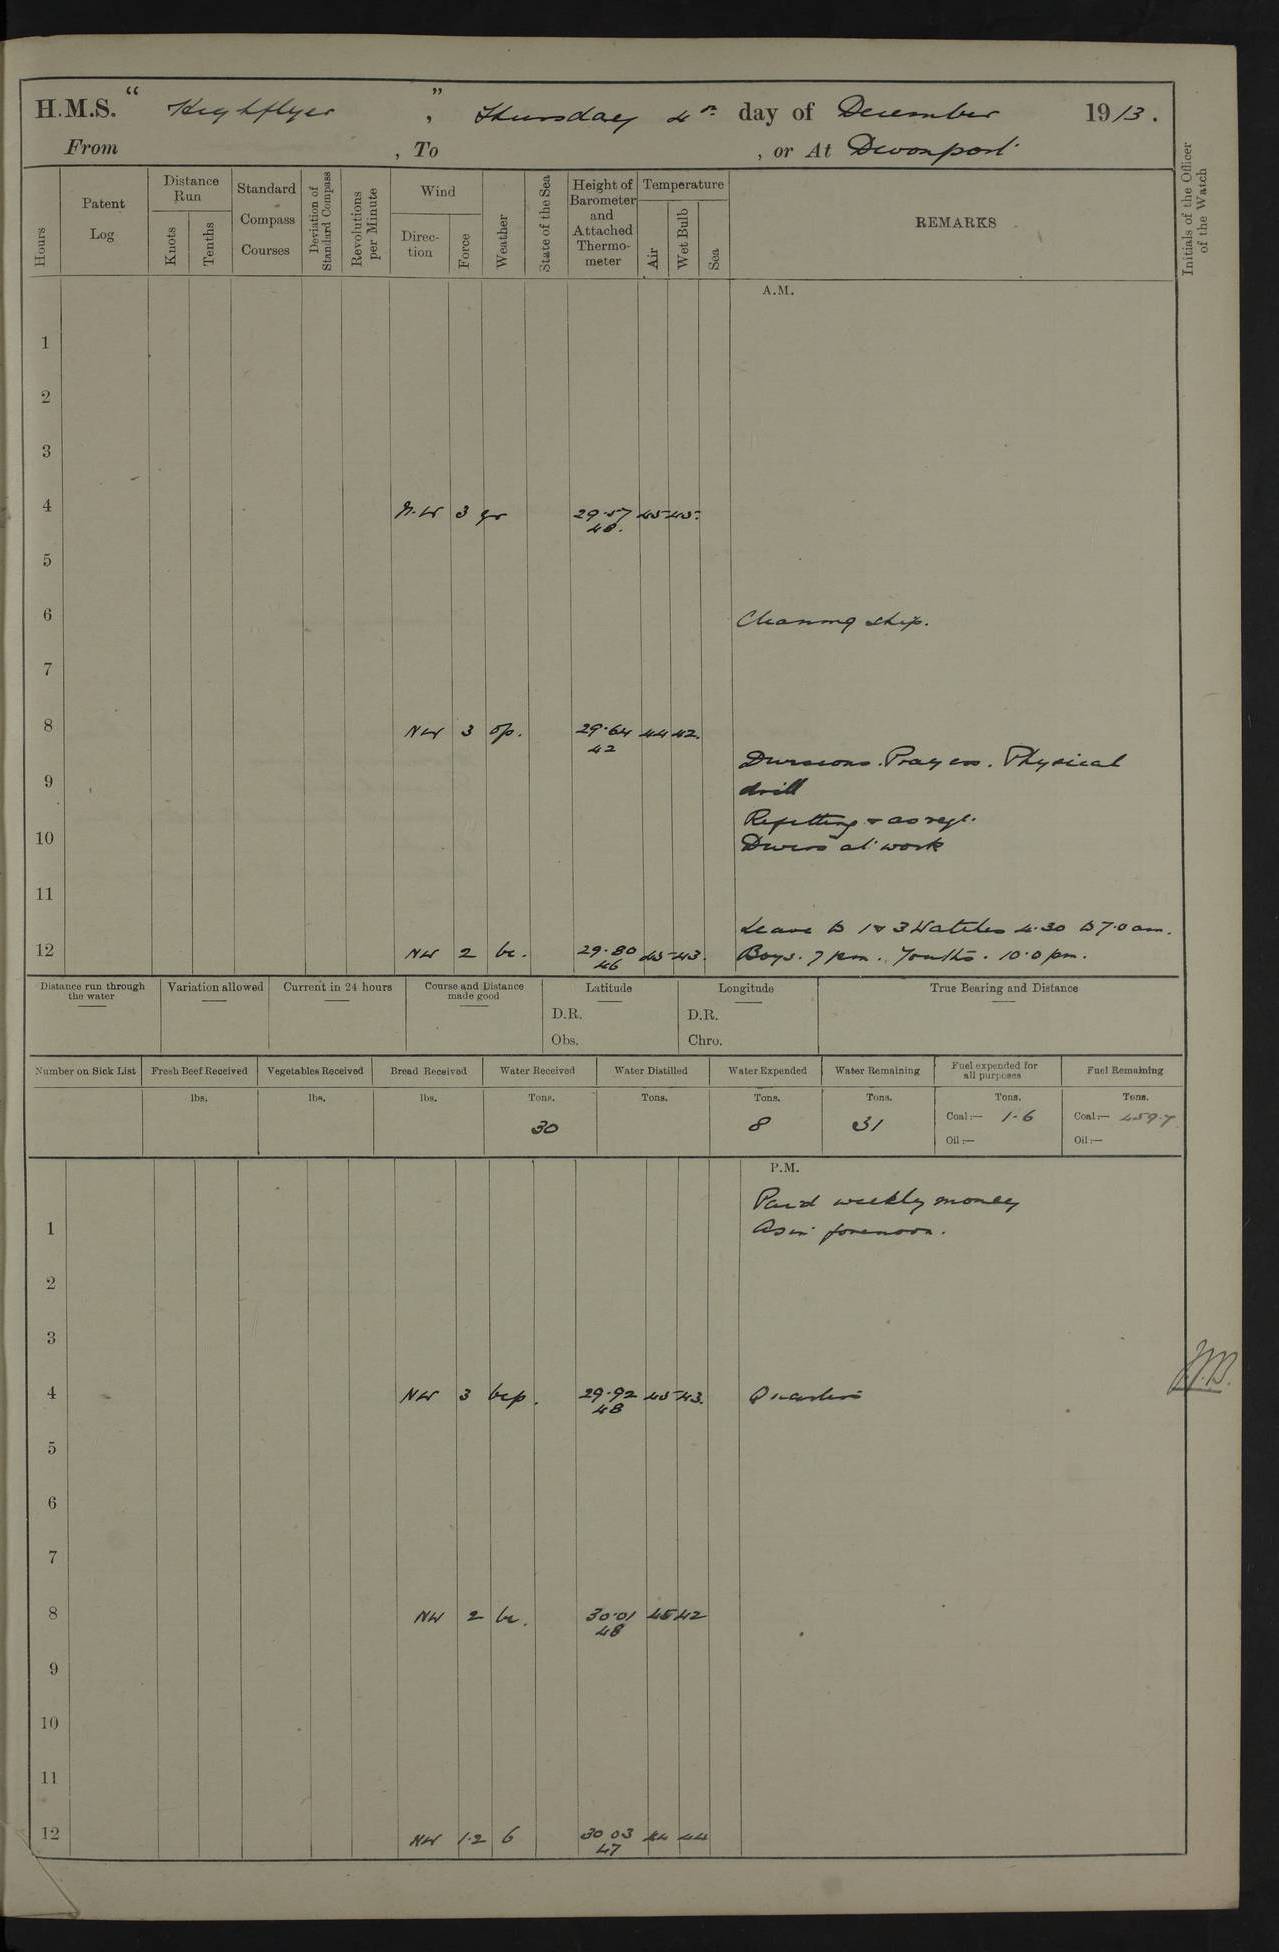 H.M.S. " Highflyer ", Thursday 4th day of December 1913.
From , To , or At Devonport
Hours
Patent Log
Distance Run
Knots
Tenths
Standard Compass Courses
Deviation of Standard Compass
Revolutions per Minute
Wind
Direction
Force
Weather
State of the Sea
Height of Barometer and Attached Thermometer
Temperature
Air
Wet Bulb
Sea
REMARKS
Initials of the Officer of the Watch
A.M.
1
2
3
4 N.W 3 29.57 45 45
48.
5
6 Cleaning ship.
7
8 NW 3 op. 29.64 44 42.
42
Divisions. Prayers. Physical
9 drill
Refitting & as reqe.
10 Divers at work
11
Leave to 1 & 3 Watches 4.30 to 7.0 am.
12 NW 2 bc. 29.80 45 43. Boys. 7 pm. Youths. 10.0 pm.
46
Distance run through the water
Variation allowed
Current in 24 hours
Course and Distance made good
Latitude
D.R.
Obs.
Longitude
D.R.
Chro.
True Bearing and Distance
Number on Sick List
Fresh Beef Received
Vegetables Received
Bread Received
Water Received
Water Distilled
Water Expended
Water Remaining
Fuel expended for all purposes
Fuel Remaining
lbs. lbs. lbs. Tons. Tons. Tons. Tons. Tons. Tons.
30 8 31 Coal:— 1.6 Coal:— 459.7
Oil:— Oil:—
P.M.
Paid weekly money
1 As in forenoon.
2
3
4 NW 3 bcp. 29.92 45 43. Quarters
48
5
6
7
8 NW 2 bc. 30.01 45 42
48
9
10
11
12 NW 1.2 b 30 03 44 44
47